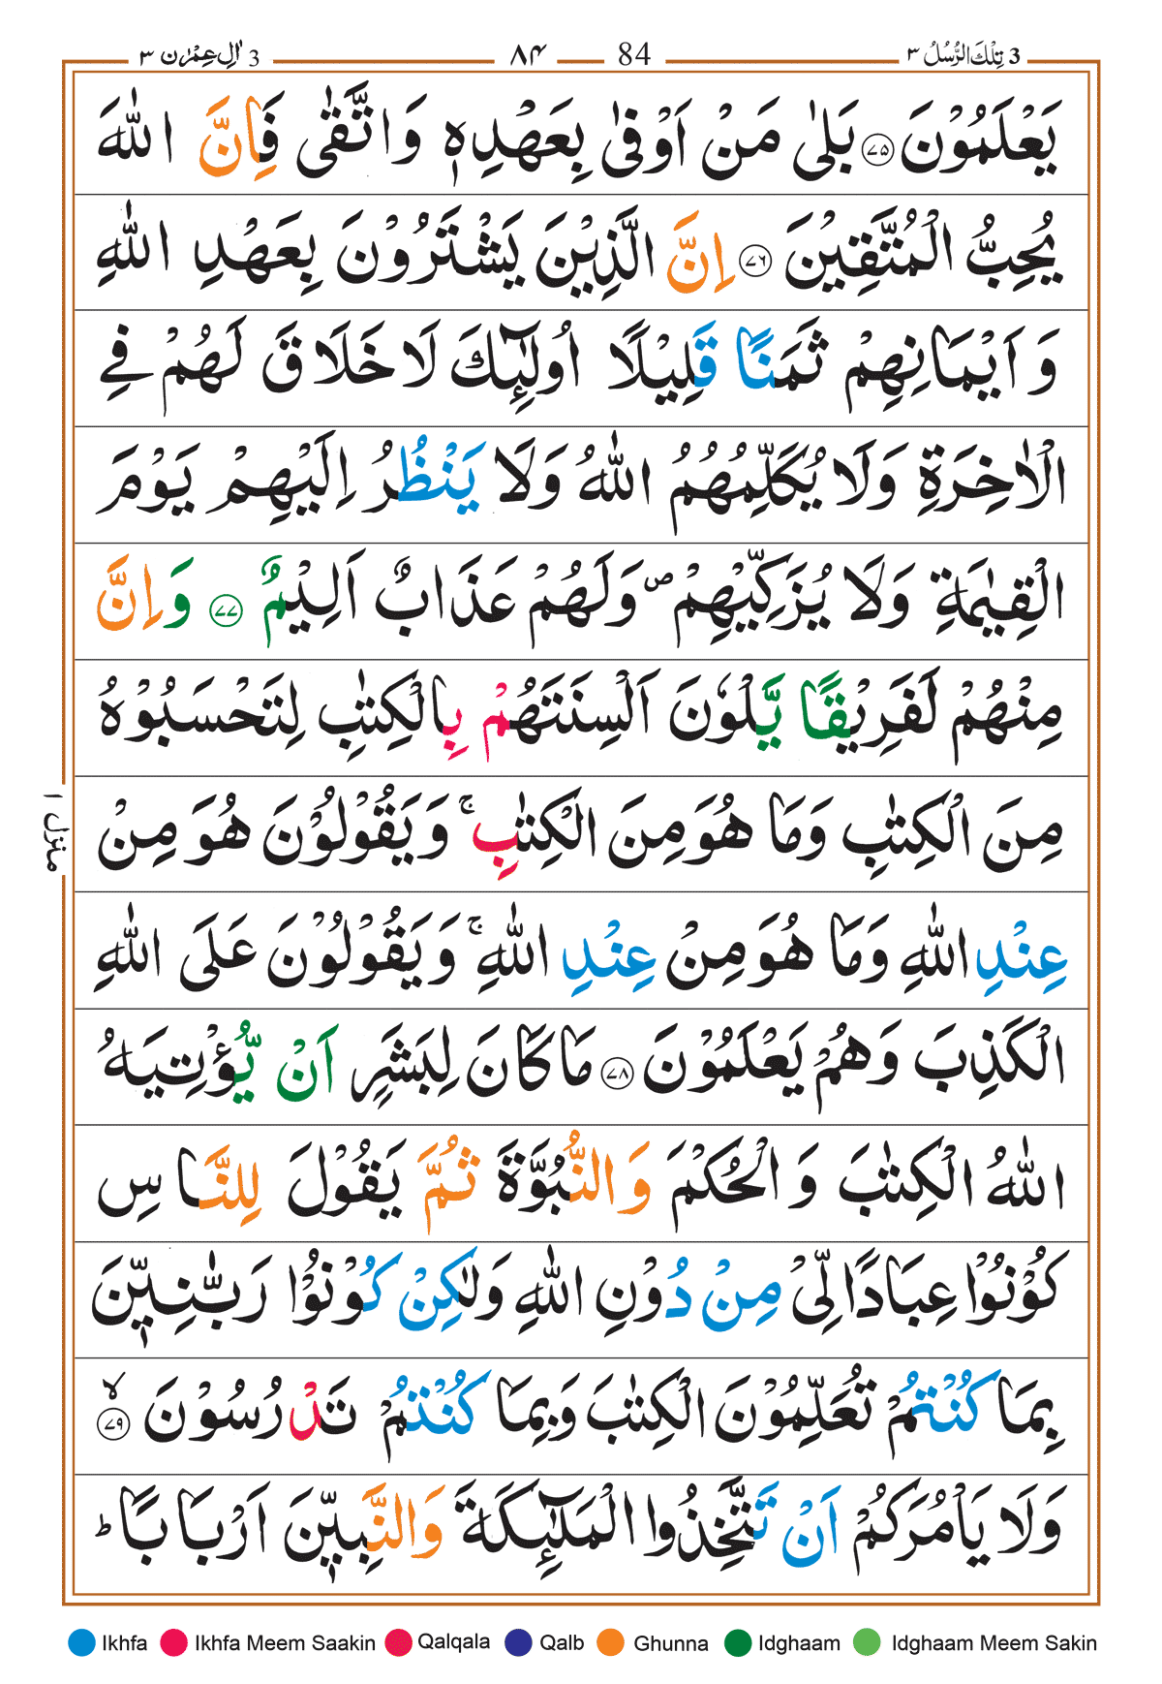 3 اٰلِ عِمْرٰن ٣ ٨۴ 84 3 تِلْكَ الرُّسُلُ ٣
يَعْلَمُوْنَ ۷۵ بَلٰى مَنْ اَوْفٰى بِعَهْدِهٖ وَاتَّقٰى فَاِنَّ اللّٰهَ
يُحِبُّ الْمُتَّقِيْنَ ۷۶ اِنَّ الَّذِيْنَ يَشْتَرُوْنَ بِعَهْدِ اللّٰهِ
وَاَيْمَانِهِمْ ثَمَنًا قَلِيْلًا اُولٰٓئِكَ لَا خَلَاقَ لَهُمْ فِي
الْاٰخِرَةِ وَلَا يُكَلِّمُهُمُ اللّٰهُ وَلَا يَنْظُرُ اِلَيْهِمْ يَوْمَ
الْقِيٰمَةِ وَلَا يُزَكِّيْهِمْ ۖ وَلَهُمْ عَذَابٌ اَلِيْمٌ ۷۷ وَاِنَّ
مِنْهُمْ لَفَرِيْقًا يَّلْوٗنَ اَلْسِنَتَهُمْ بِالْكِتٰبِ لِتَحْسَبُوْهُ
مِنَ الْكِتٰبِ وَمَا هُوَ مِنَ الْكِتٰبِ ۚ وَيَقُوْلُوْنَ هُوَ مِنْ
عِنْدِ اللّٰهِ وَمَا هُوَ مِنْ عِنْدِ اللّٰهِ ۚ وَيَقُوْلُوْنَ عَلَى اللّٰهِ
الْكَذِبَ وَهُمْ يَعْلَمُوْنَ ۷۸ مَا كَانَ لِبَشَرٍ اَنْ يُّؤْتِيَهُ
اللّٰهُ الْكِتٰبَ وَالْحُكْمَ وَالنُّبُوَّةَ ثُمَّ يَقُوْلَ لِلنَّاسِ
كُوْنُوْا عِبَادًا لِّيْ مِنْ دُوْنِ اللّٰهِ وَلٰكِنْ كُوْنُوْا رَبّٰنِيّٖنَ
بِمَا كُنْتُمْ تُعَلِّمُوْنَ الْكِتٰبَ وَبِمَا كُنْتُمْ تَدْرُسُوْنَ ۙ ۷۹
وَلَا يَاْمُرَكُمْ اَنْ تَتَّخِذُوا الْمَلٰٓئِكَةَ وَالنَّبِيّٖنَ اَرْبَابًا ؕ
منزل ١
Ikhfa Ikhfa Meem Saakin Qalqala Qalb Ghunna Idghaam Idghaam Meem Sakin